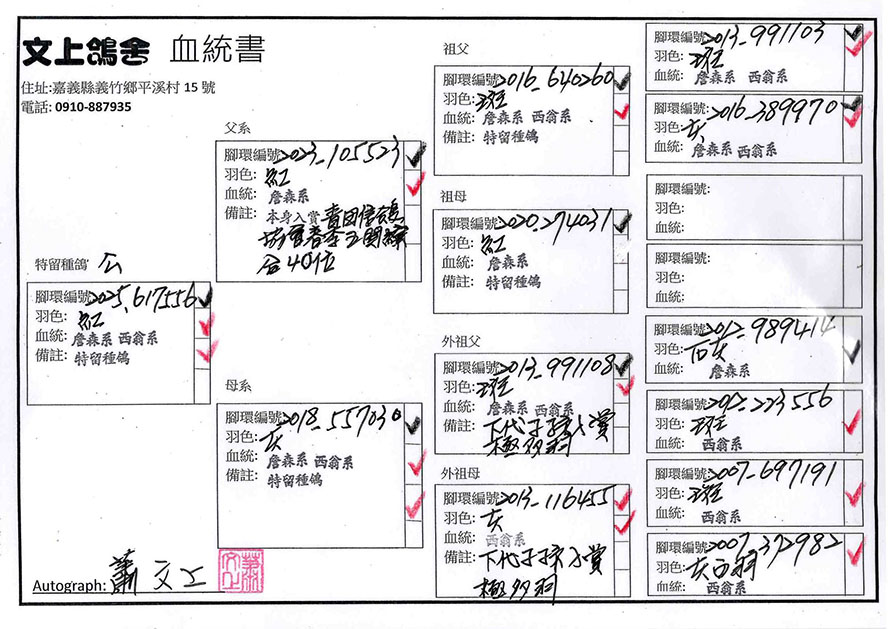 文上鴿舍 血統書
住址:嘉義縣義竹鄉平溪村 15 號
電話: 0910-887935
特留種鴿 公
腳環編號:2025.617556
羽色: 紅
血統: 詹森系 西翁系
備註: 特留種鴿
父系
腳環編號:2023-105523
羽色: 紅
血統: 詹森系
備註: 本身入賞
合40位
母系
腳環編號:2018-557030
羽色: 灰
血統: 詹森系 西翁系
備註: 特留種鴿
祖父
腳環編號:2016-640260
羽色: 斑
血統: 詹森系 西翁系
備註: 特留種鴿
祖母
腳環編號:2020.274031
羽色: 紅
血統: 詹森系
備註: 特留種鴿
外祖父
腳環編號:2013-991108
羽色: 斑
血統: 詹森系 西翁系
備註: 下代子孫入賞
極多羽
外祖母
腳環編號:2013-116455
羽色: 灰
血統: 西翁系
備註: 下代子孫入賞
極多羽
腳環編號:2013-991103
羽色: 斑
血統: 詹森系 西翁系
腳環編號:2016-389970
羽色: 灰
血統: 詹森系 西翁系
腳環編號:
羽色:
血統:
腳環編號:
羽色:
血統:
腳環編號:2012-989414
羽色: 石灰
血統: 詹森系
腳環編號:2012-223556
羽色: 斑
血統: 西翁系
腳環編號:2007-697191
羽色: 斑
血統: 西翁系
腳環編號:2007.372982
羽色: 灰白羽
血統: 西翁系
Autograph: 蕭文上